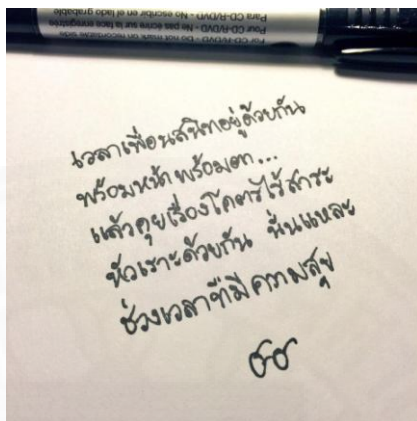 Para CD-R/DVD - No escribir en el lado grabable
Pour CD-R/DVD - Ne pas écrire sur la face enregistrée
For CD-R/DVD - Do not mark on recordable side
เวลาเพื่อนสนิทอยู่ด้วยกัน
พร้อมหน้าพร้อมตา...
แล้วคุยเรื่องโคตรไร้สาระ
หัวเราะด้วยกัน นั่นแหละ
ช่วงเวลาที่มีความสุข